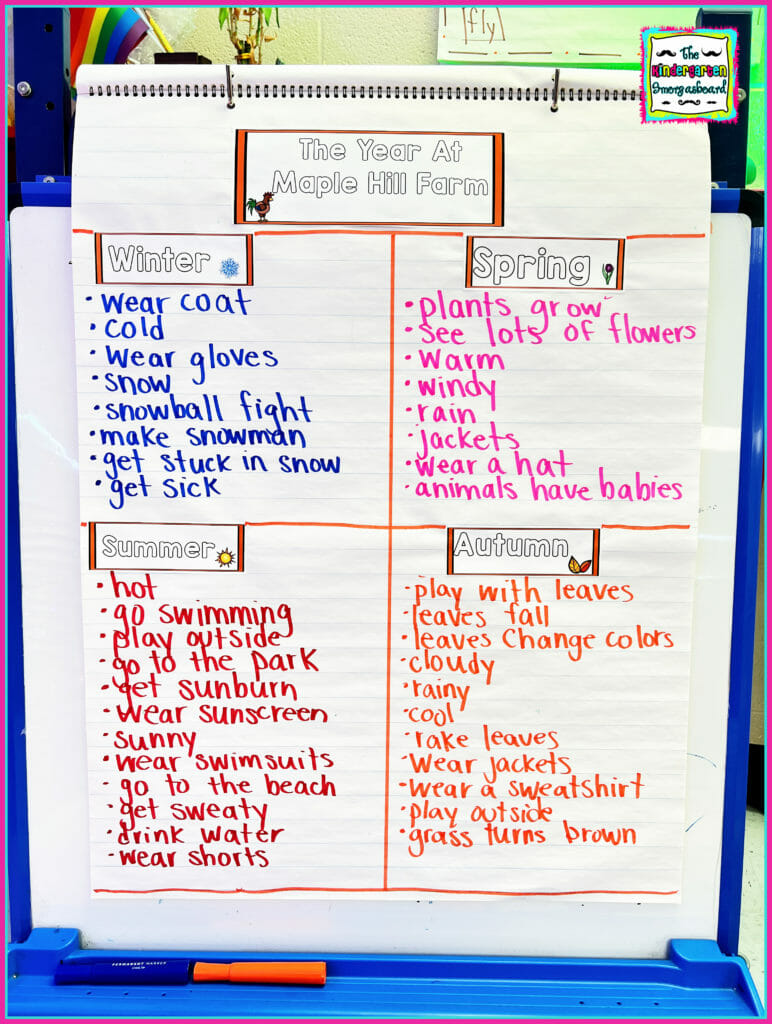 fly
The
Kindergarten
Smorgasboard
The Year At
Maple Hill Farm
Winter
• wear coat
• cold
• wear gloves
• snow
• snowball fight
• make snowman
• get stuck in snow
• get sick
Spring
• plants grow
• see lots of flowers
• warm
• windy
• rain
• jackets
• wear a hat
• animals have babies
Summer
• hot
• go swimming
• play outside
• go to the park
• get sunburn
• wear sunscreen
• sunny
• wear swimsuits
• go to the beach
• get sweaty
• drink water
• wear shorts
Autumn
• play with leaves
• leaves fall
• leaves change colors
• cloudy
• rainy
• cool
• rake leaves
• wear jackets
• wear a sweatshirt
• play outside
• grass turns brown
PERMANENT MARKER